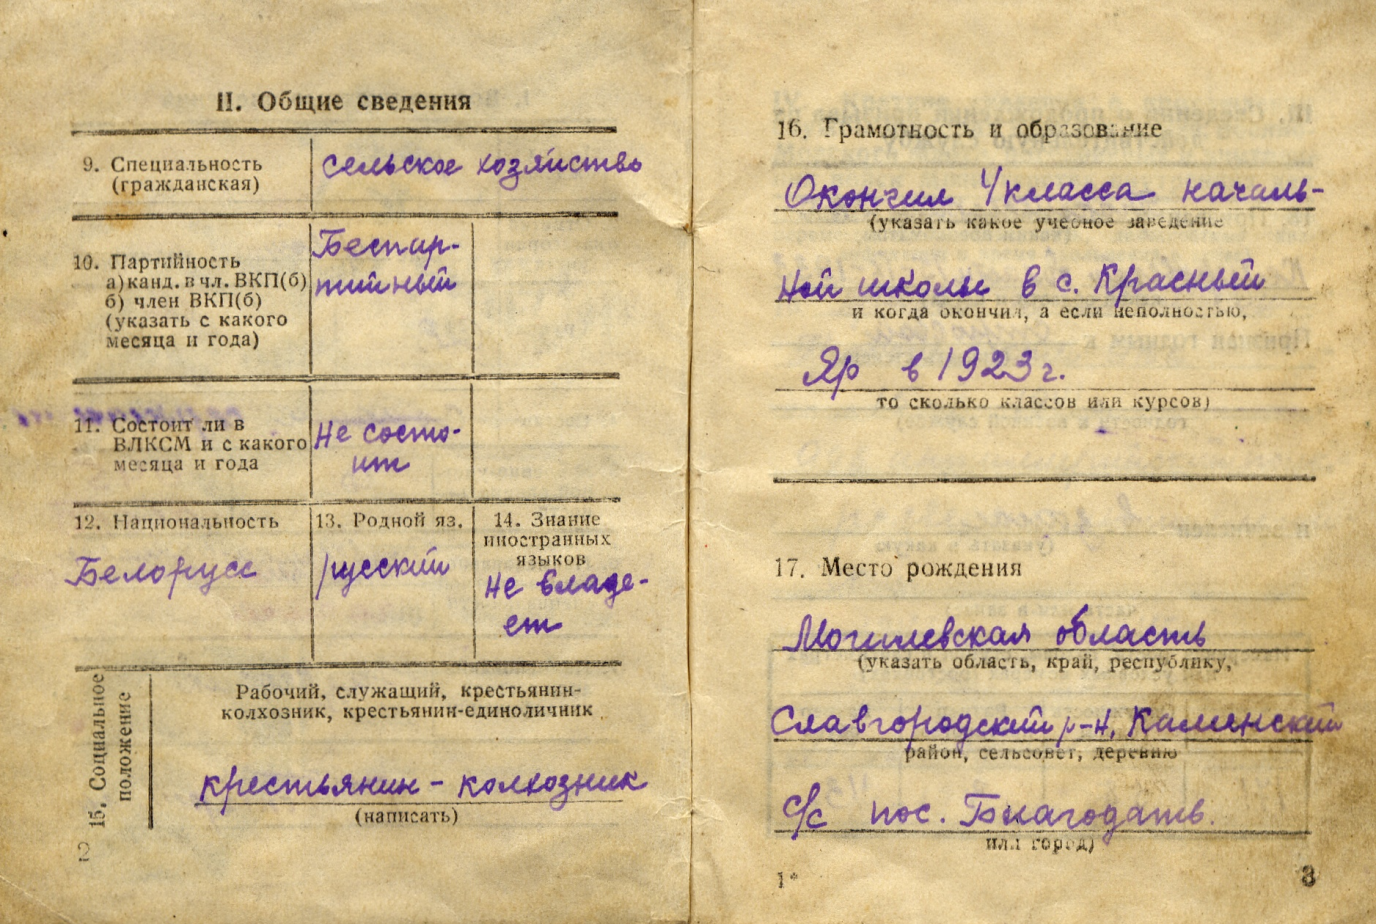 II. Общие сведения
9. Специальность
(гражданская)
сельское хозяйство
10. Партийность
а) канд. в чл. ВКП(б)
б) член ВКП(б)
(указать с какого
месяца и года)
Беспар-
тийный
11. Состоит ли в
ВЛКСМ и с какого
месяца и года
Не состо-
ит
12. Национальность
Белорусс
13. Родной яз.
русский
14. Знание
иностранных
языков
Не владе-
ет
15. Социальное
положение
Рабочий, служащий, крестьянин-
колхозник, крестьянин-единоличник
крестьянин - колхозник
(написать)
2
16. Грамотность и образование
Окончил 4 класса началь-
(указать какое учебное заведение
ной школы в с. Красный
и когда окончил, а если неполностью,
Яр в 1923 г.
то сколько классов или курсов)
17. Место рождения
Могилевская область
(указать область, край, республику,
Славгородский р-н, Каменский
район, сельсовет, деревню
с/с пос. Благодать.
или город)
1*
3